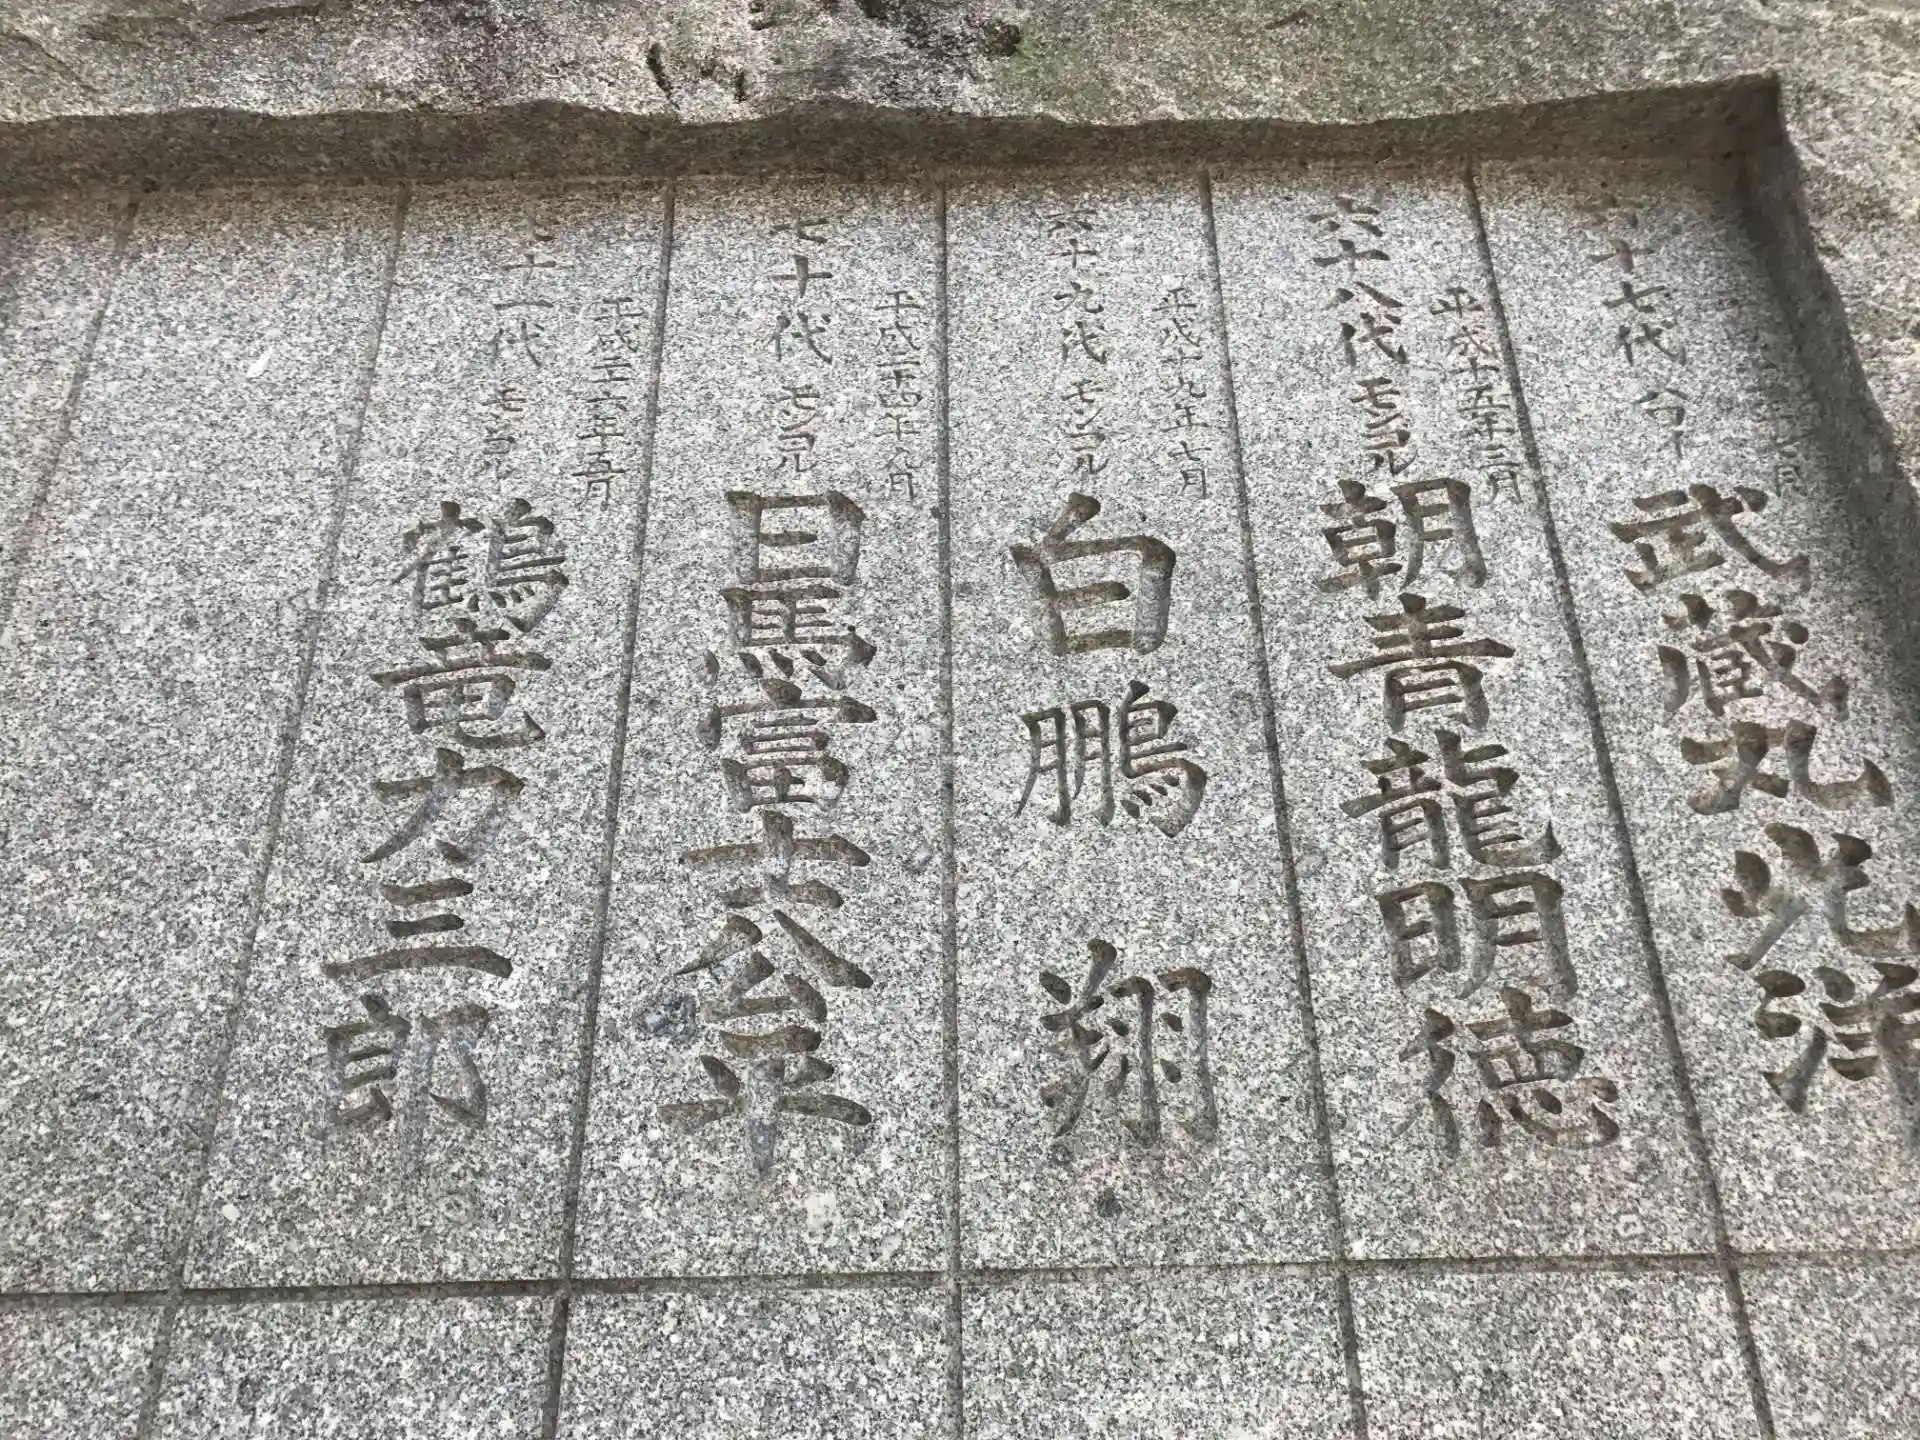 十七代 ハワイ
武蔵丸光洋
平成十五年三月
六十八代 モンゴル
朝青龍明徳
平成十九年七月
六十九代 モンゴル
白鵬 翔
平成二十四年九月
七十代 モンゴル
日馬富士公平
平成二十六年五月
七十一代 モンゴル
鶴竜力三郎